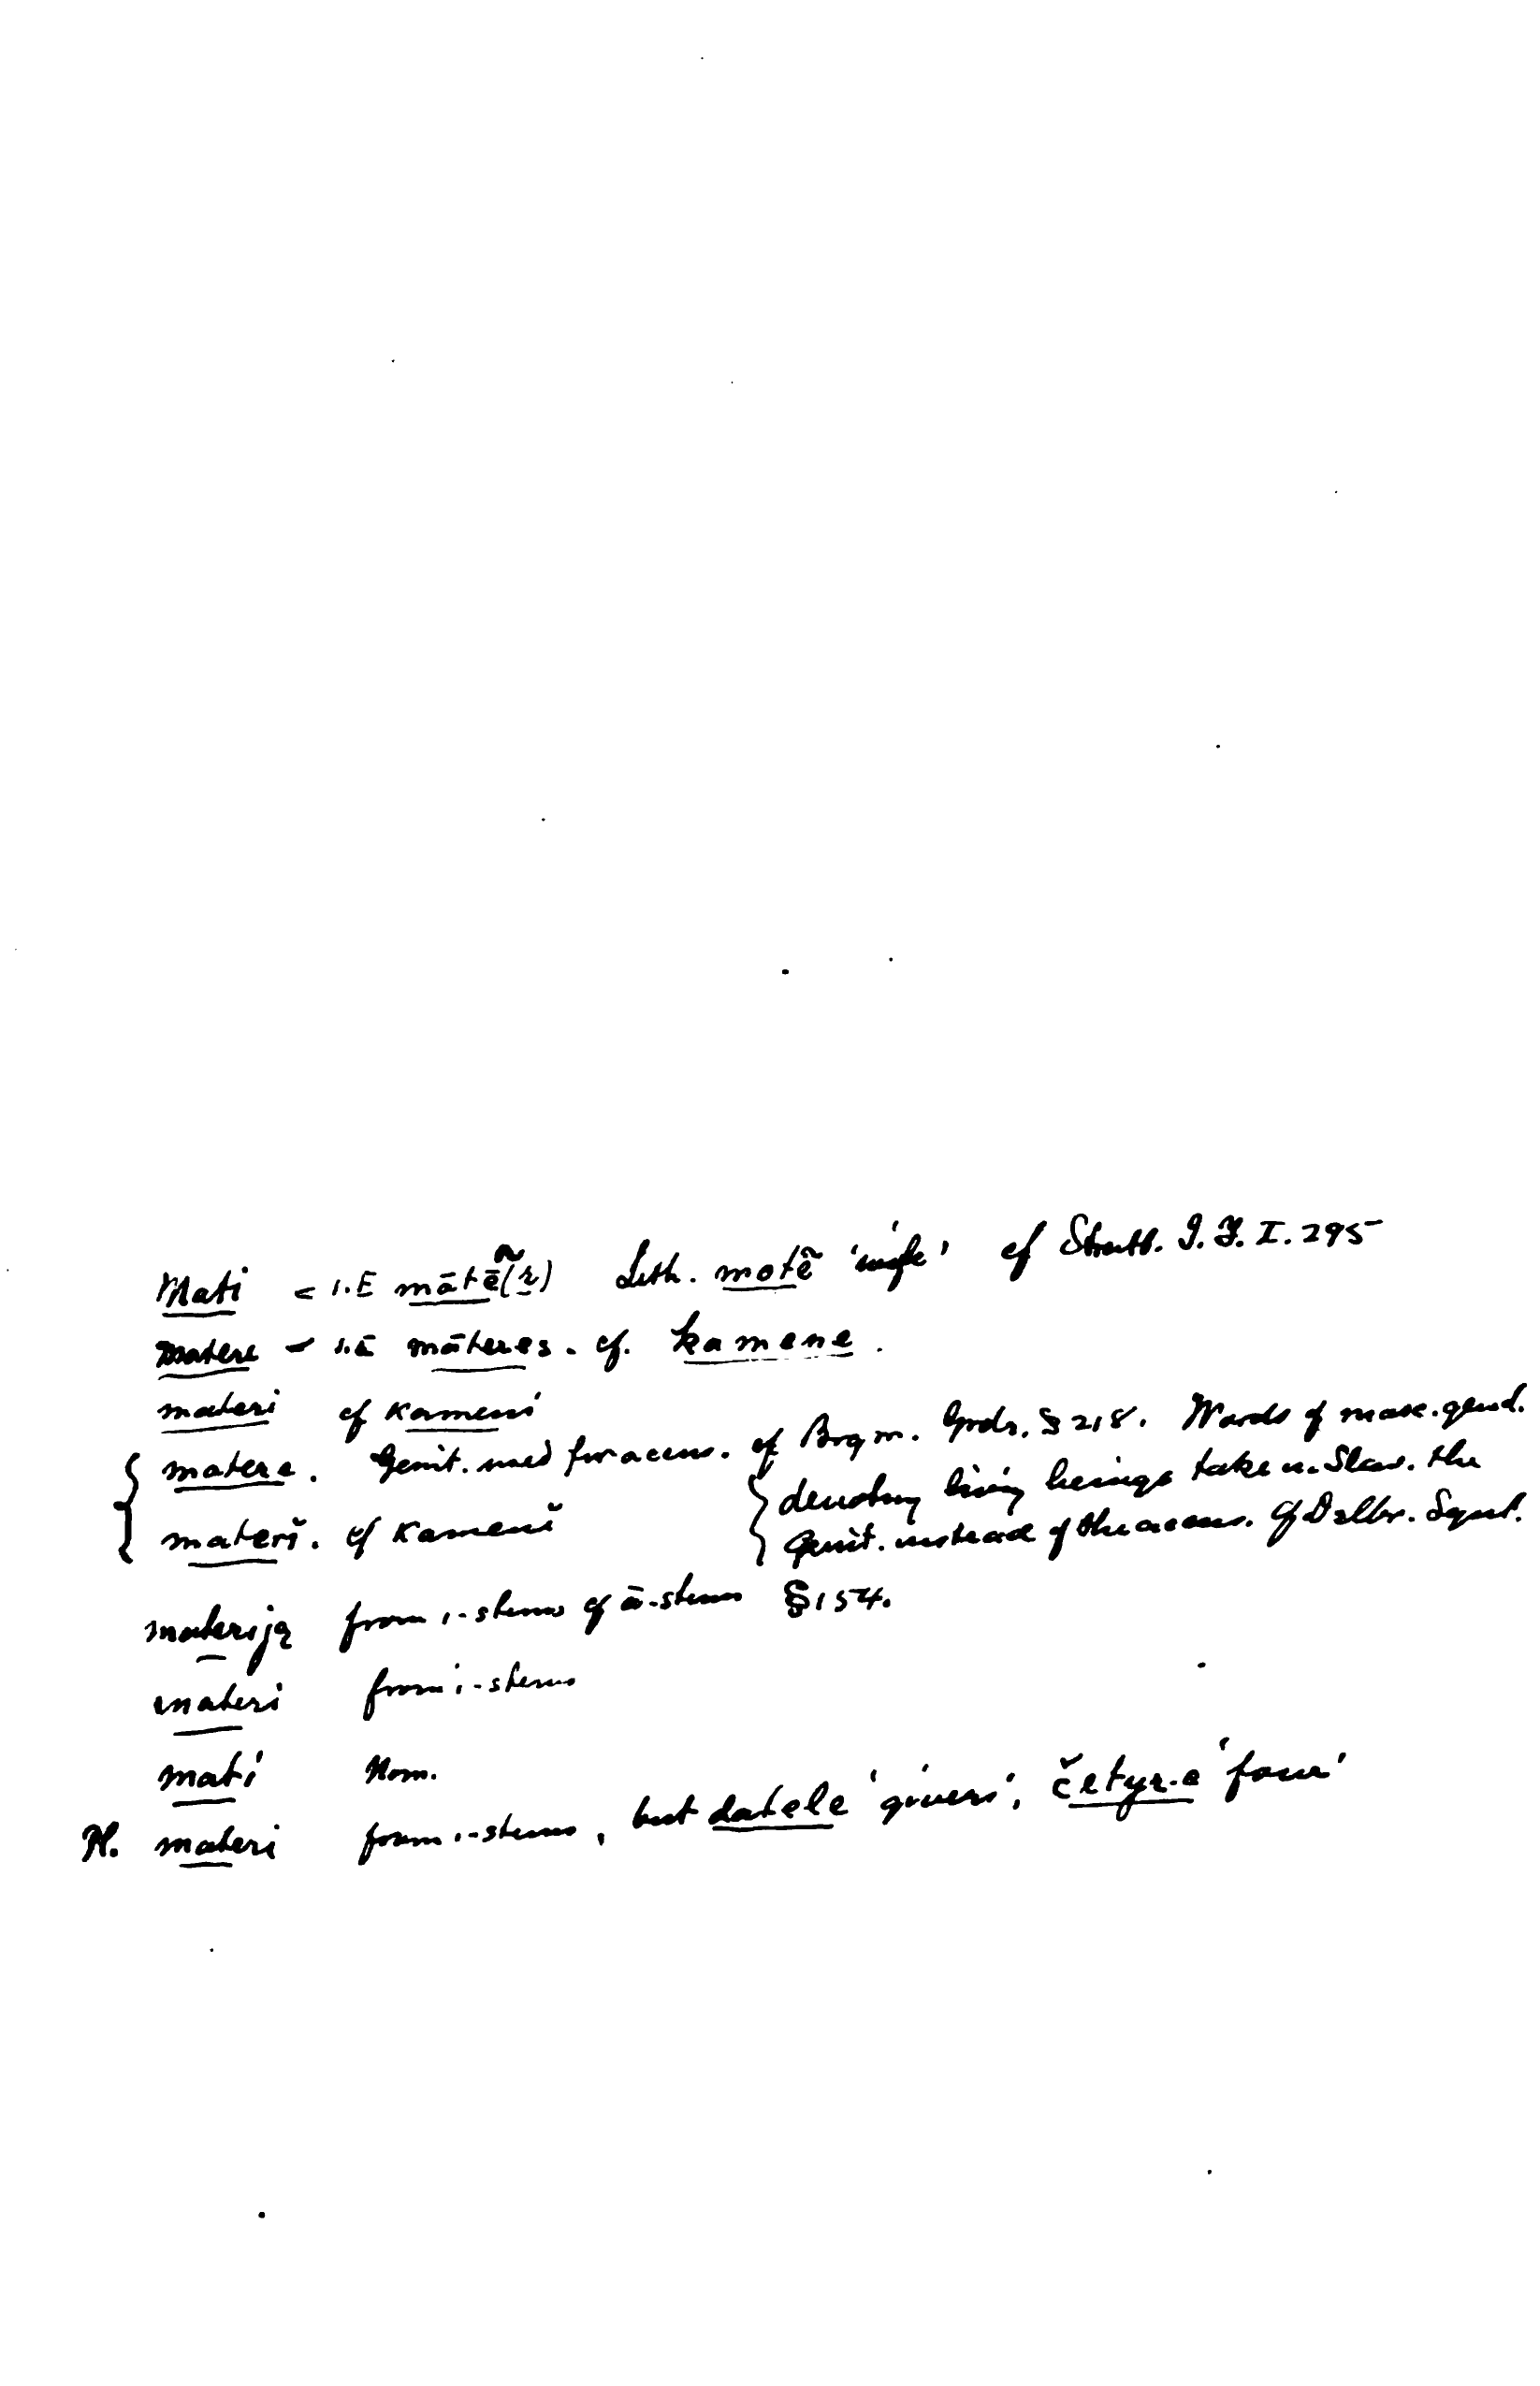 Mati = I.E mātē̃(r) Lith. motė̃ 'wife' cf Streitb. I. F. I. 295
matere = I.E māteres. cf. kamene.
materi cf kameni
matere. Genit. used for accus. cf Brgm. Grdr. § 218. Words of masc. gend.
denoting living beings take in Slav. the
materĭ. cf kamenĭ
Genit. instead of the accus. cf Delbr. Synt.
materiją from i-stems cf ā-stems § 154.
materi from i-stems
mati Nom.
Pl. materi from i-stems, but datele 'givers', četyr-e 'four'